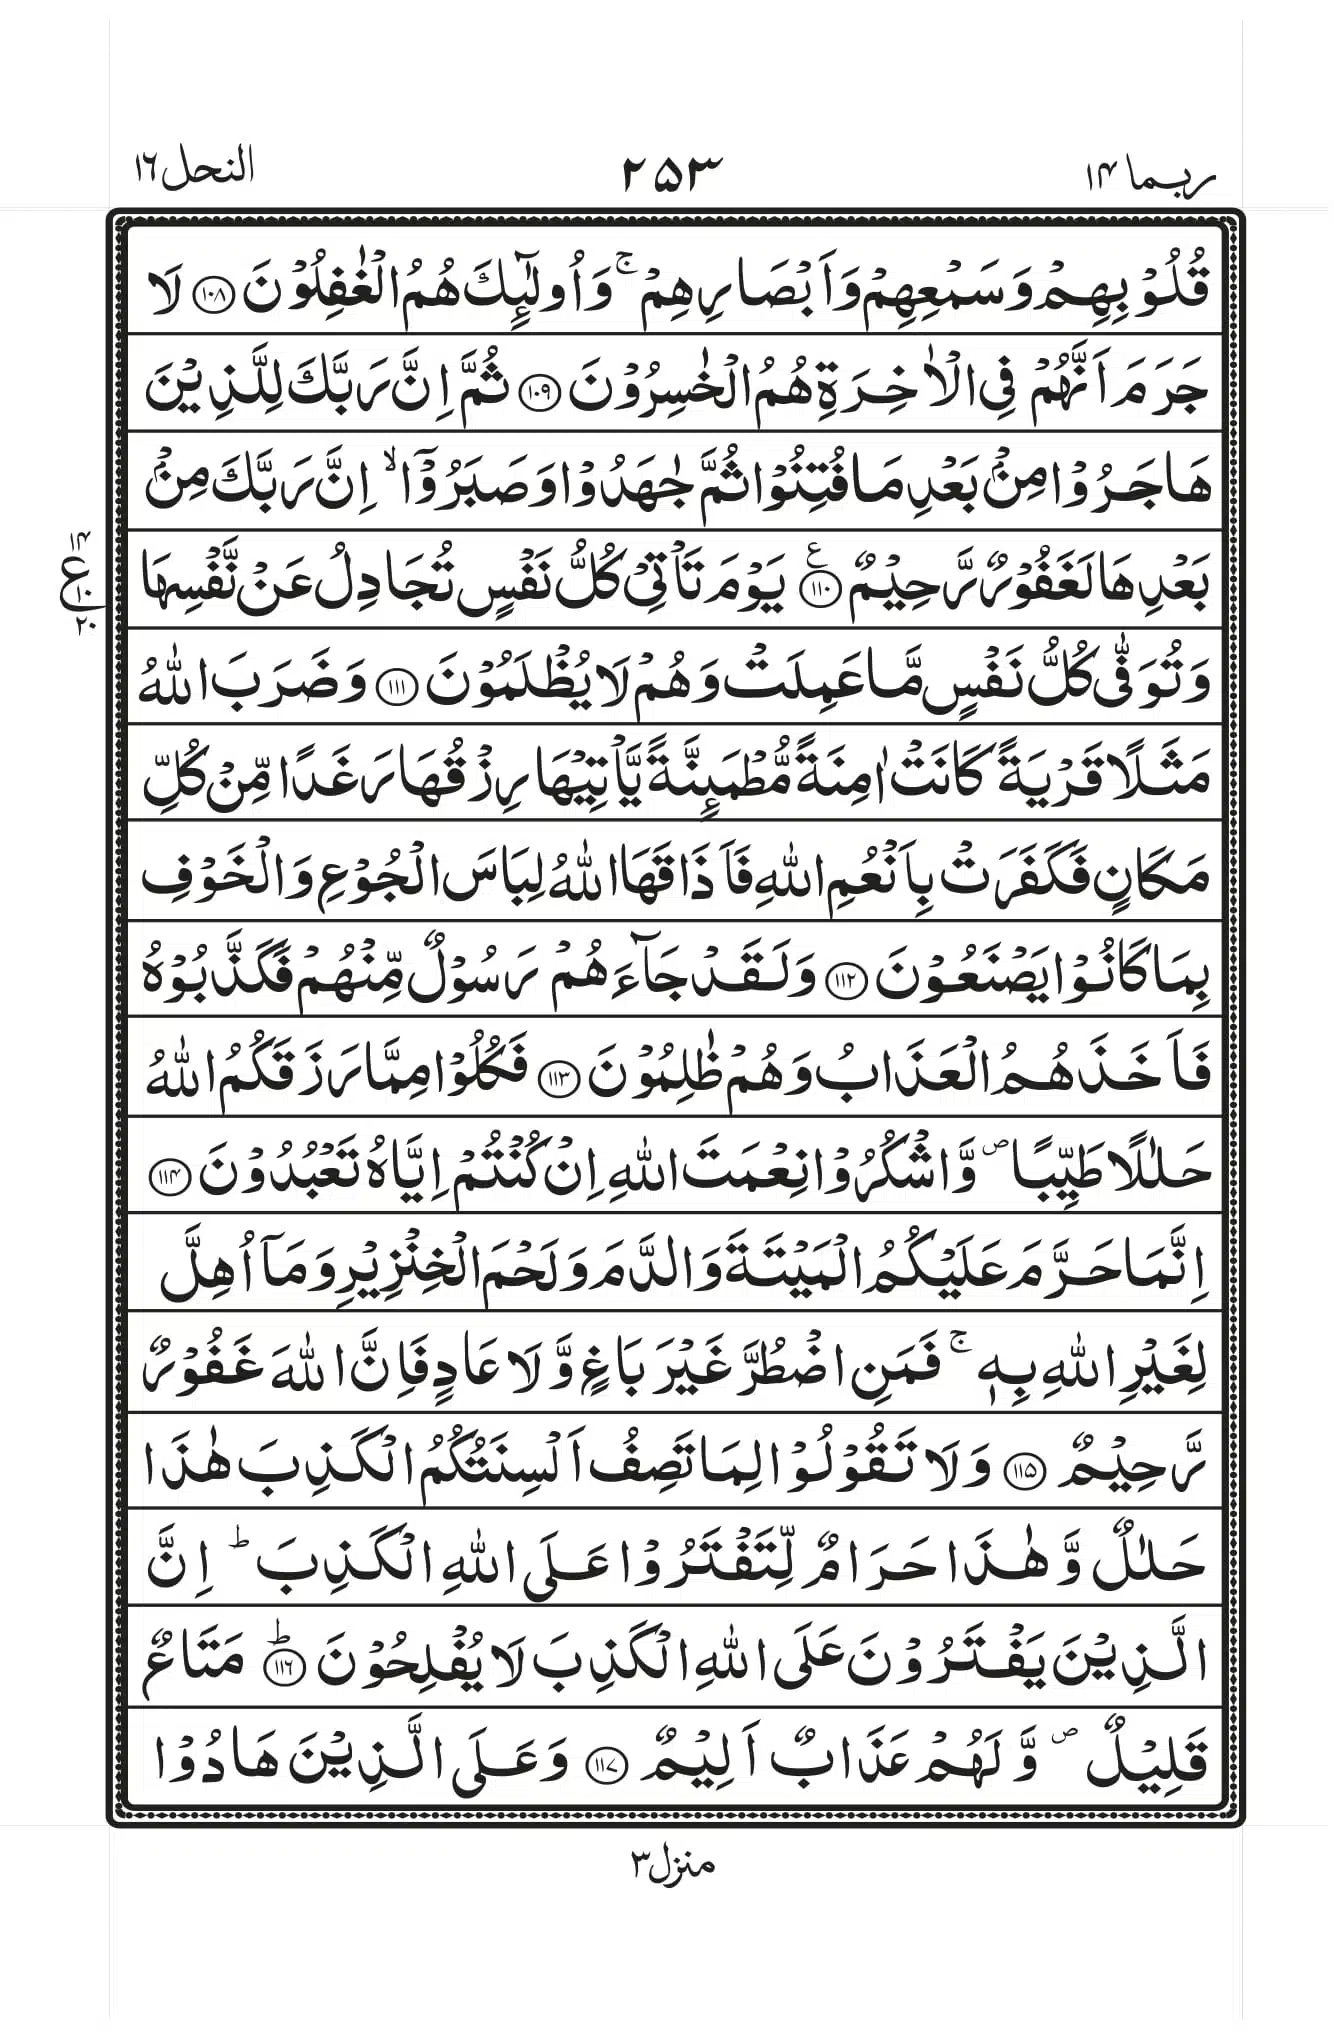 ربما ١۴
٢۵٣
النحل ١٦
قُلُوْبِهِمْ وَسَمْعِهِمْ وَاَبْصَارِهِمْ ۚ وَاُولٰٓئِكَ هُمُ الْغٰفِلُوْنَ ﴿١٠٨﴾ لَا
جَرَمَ اَنَّهُمْ فِي الْاٰخِرَةِ هُمُ الْخٰسِرُوْنَ ﴿١٠٩﴾ ثُمَّ اِنَّ رَبَّكَ لِلَّذِيْنَ
هَاجَرُوْا مِنْۢ بَعْدِ مَا فُتِنُوْا ثُمَّ جٰهَدُوْا وَصَبَرُوْٓا ۙ اِنَّ رَبَّكَ مِنْۢ
بَعْدِهَا لَغَفُوْرٌ رَّحِيْمٌ ﴿١١٠﴾ ع يَوْمَ تَاْتِيْ كُلُّ نَفْسٍ تُجَادِلُ عَنْ نَّفْسِهَا
١۴
ع
١٠
٢٠
وَتُوَفّٰى كُلُّ نَفْسٍ مَّا عَمِلَتْ وَهُمْ لَا يُظْلَمُوْنَ ﴿١١١﴾ وَضَرَبَ اللّٰهُ
مَثَلًا قَرْيَةً كَانَتْ اٰمِنَةً مُّطْمَئِنَّةً يَّاْتِيْهَا رِزْقُهَا رَغَدًا مِّنْ كُلِّ
مَكَانٍ فَكَفَرَتْ بِاَنْعُمِ اللّٰهِ فَاَذَاقَهَا اللّٰهُ لِبَاسَ الْجُوْعِ وَالْخَوْفِ
بِمَا كَانُوْا يَصْنَعُوْنَ ﴿١١٢﴾ وَلَقَدْ جَآءَهُمْ رَسُوْلٌ مِّنْهُمْ فَكَذَّبُوْهُ
فَاَخَذَهُمُ الْعَذَابُ وَهُمْ ظٰلِمُوْنَ ﴿١١٣﴾ فَكُلُوْا مِمَّا رَزَقَكُمُ اللّٰهُ
حَلٰلًا طَيِّبًا ۖ وَّاشْكُرُوْا نِعْمَتَ اللّٰهِ اِنْ كُنْتُمْ اِيَّاهُ تَعْبُدُوْنَ ﴿١١۴﴾
اِنَّمَا حَرَّمَ عَلَيْكُمُ الْمَيْتَةَ وَالدَّمَ وَلَحْمَ الْخِنْزِيْرِ وَمَآ اُهِلَّ
لِغَيْرِ اللّٰهِ بِهٖ ۚ فَمَنِ اضْطُرَّ غَيْرَ بَاغٍ وَّلَا عَادٍ فَاِنَّ اللّٰهَ غَفُوْرٌ
رَّحِيْمٌ ﴿١١۵﴾ وَلَا تَقُوْلُوْا لِمَا تَصِفُ اَلْسِنَتُكُمُ الْكَذِبَ هٰذَا
حَلٰلٌ وَّهٰذَا حَرَامٌ لِّتَفْتَرُوْا عَلَى اللّٰهِ الْكَذِبَ ؕ اِنَّ
الَّذِيْنَ يَفْتَرُوْنَ عَلَى اللّٰهِ الْكَذِبَ لَا يُفْلِحُوْنَ ﴿١١٦﴾ؕ مَتَاعٌ
قَلِيْلٌ ۖ وَّلَهُمْ عَذَابٌ اَلِيْمٌ ﴿١١٧﴾ وَعَلَى الَّذِيْنَ هَادُوْا
منزل ٣